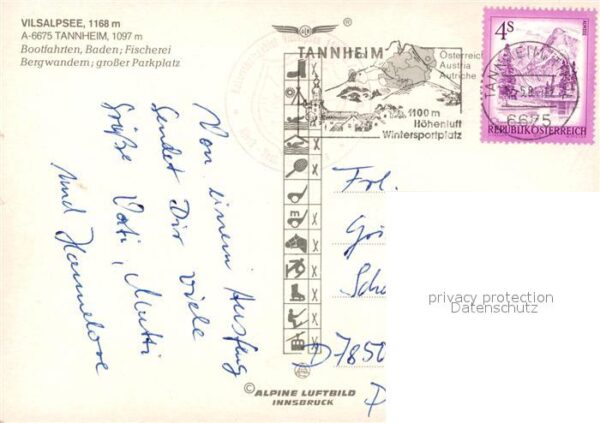 VILSALPSEE, 1168 m
A-6675 TANNHEIM, 1097 m
Bootfahrten, Baden; Fischerei
Bergwandern; großer Parkplatz
TANNHEIM
Österreich
Austria
Autriche
1100 m
Höhenluft
Wintersportplatz
4S
TANNHEIM
6675
REPUBLIK ÖSTERREICH
Von einem Ausflug
sendet Dir viele
Grüße Vati, Mutti
und Hannelore
Frl.
D 7850
privacy protection
Datenschutz
© ALPINE LUFTBILD
INNSBRUCK